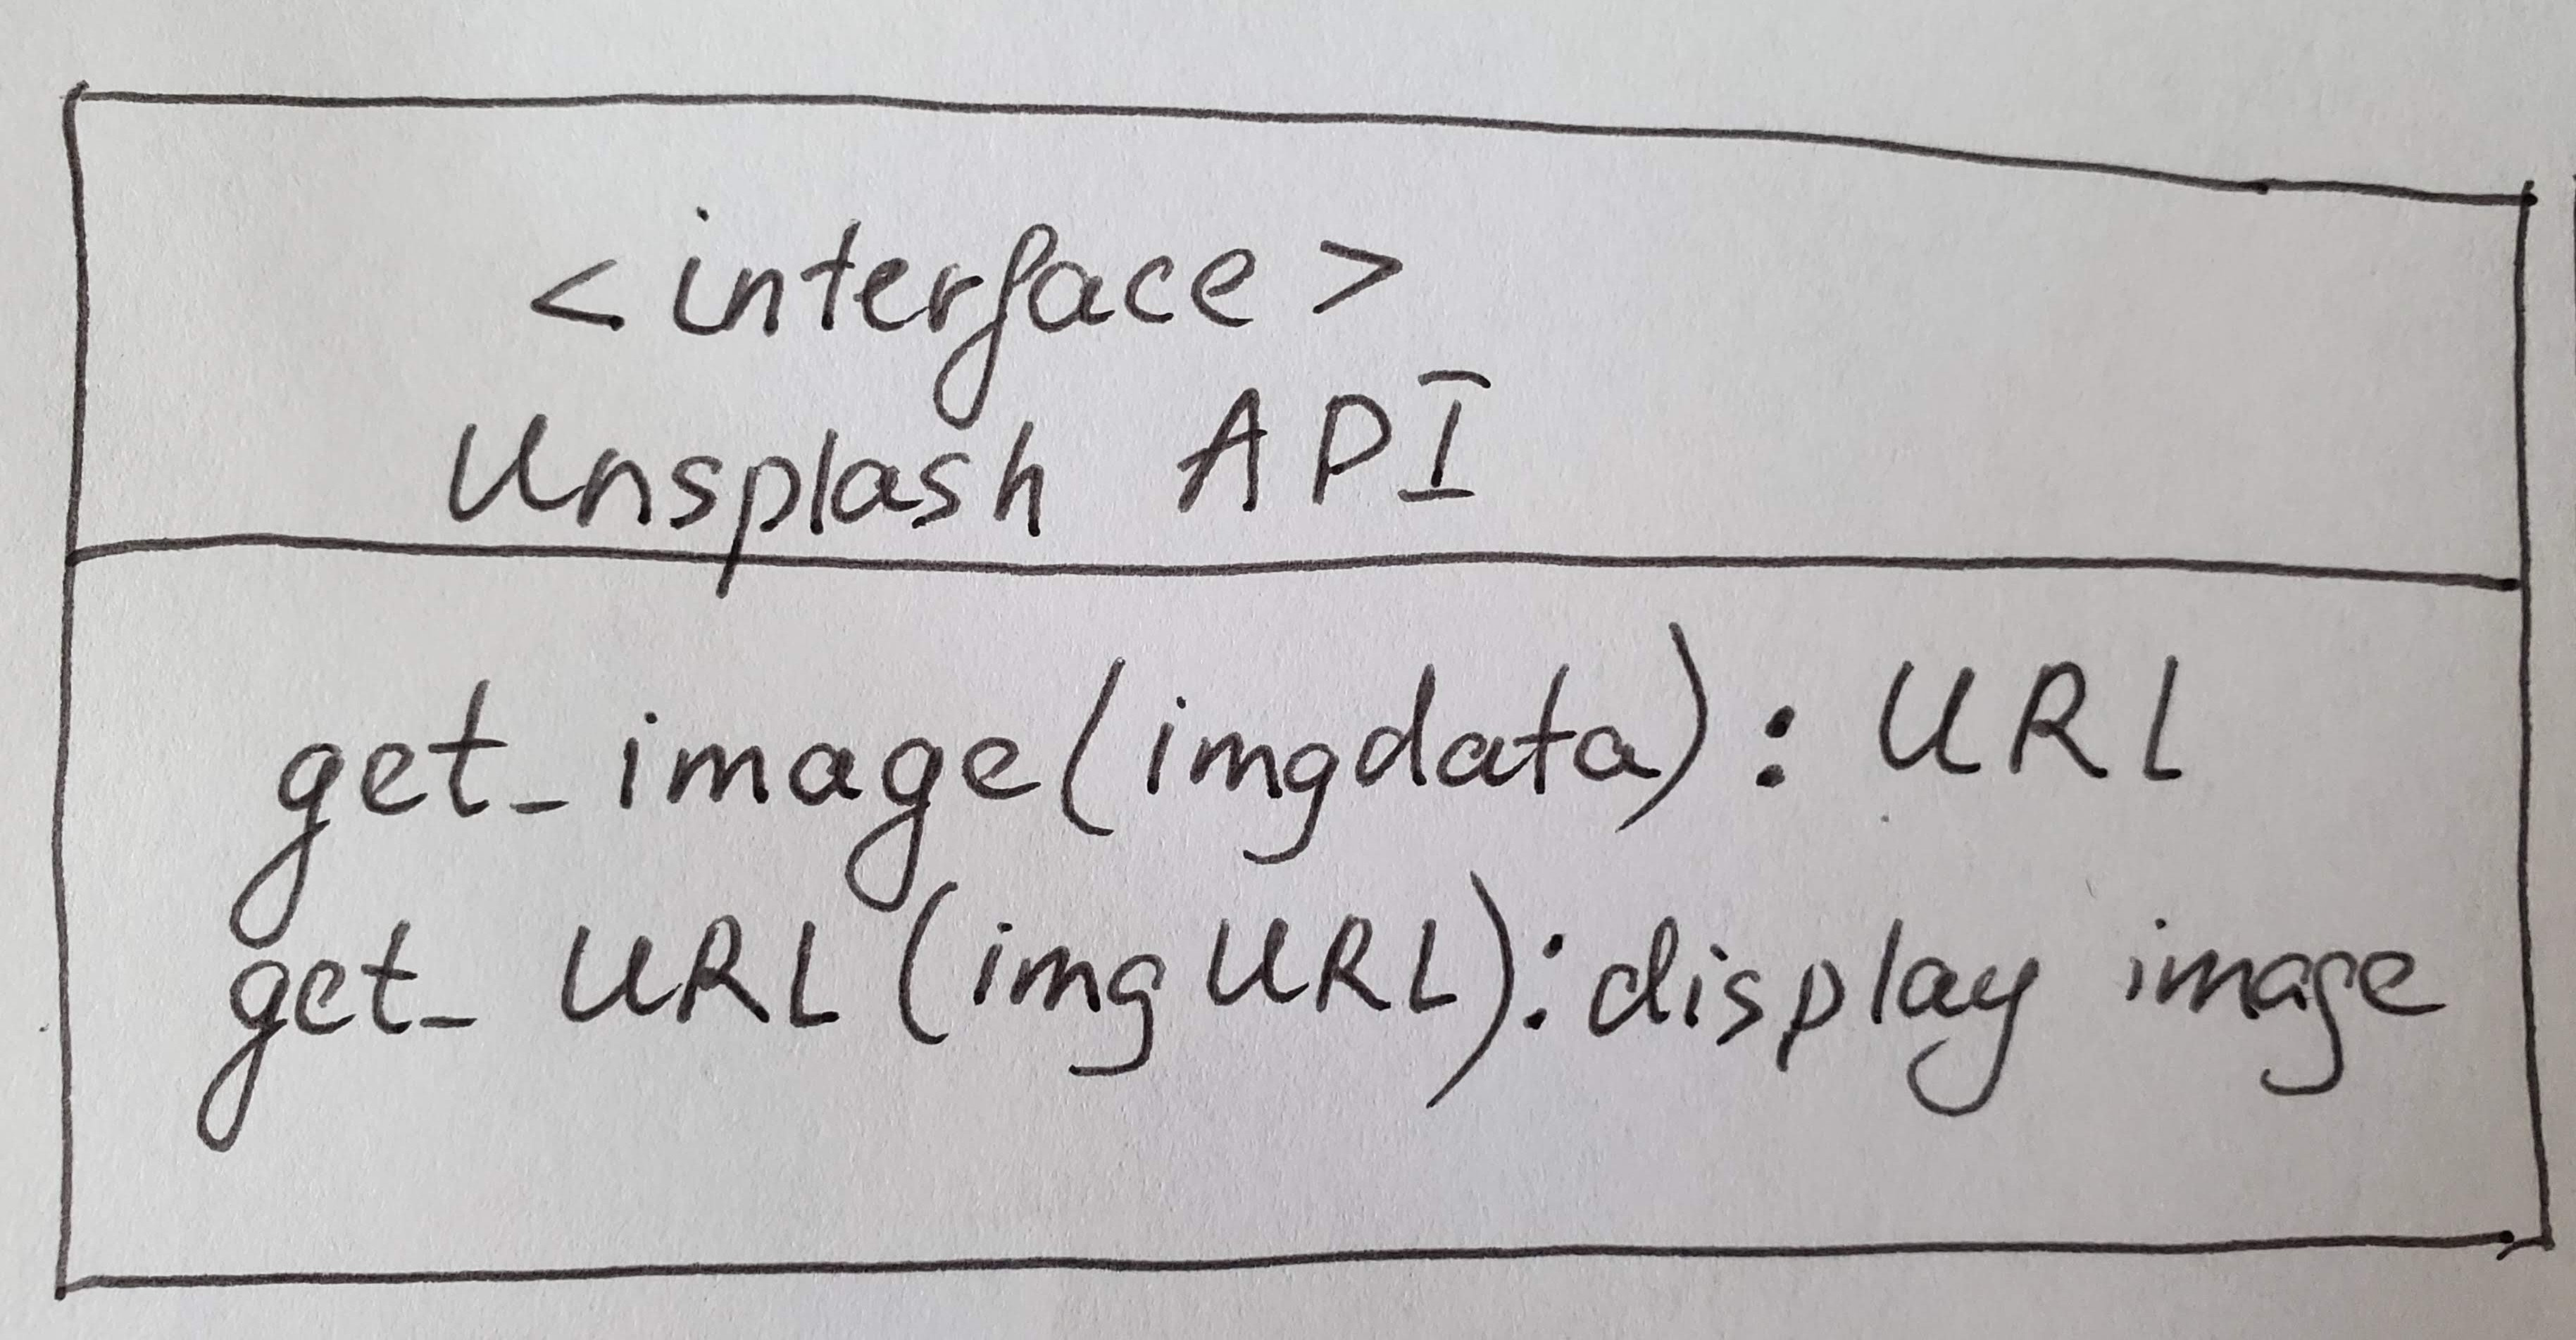 <interface>
Unsplash API
get_image(imgdata): URL
get_URL(imgURL): display image